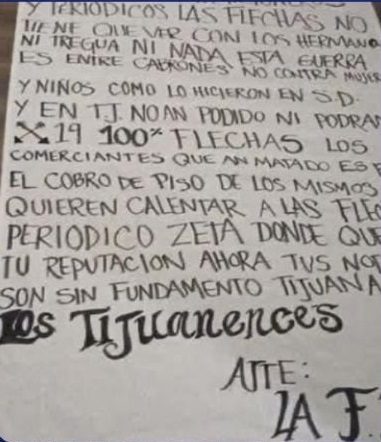 Y PERIODICOS LAS FLECHAS NO
TIENE QUE VER CON LOS HERMANO
NI TREGUA NI NADA ESTA GUERRA
ES ENTRE CABRONES NO CONTRA MUJER
Y NIÑOS COMO LO HICIERON EN S.D.
Y EN TJ. NO AN PODIDO NI PODRAN
19 100% FLECHAS LOS
COMERCIANTES QUE AN MATADO ES P
EL COBRO DE PISO DE LOS MISMOS
QUIEREN CALENTAR A LAS FLE
PERIODICO ZETA DONDE QUE
TU REPUTACION AHORA TUS NOT
SON SIN FUNDAMENTO TIJUANA
LOS TIJUANENCES
ATTE:
LA F.